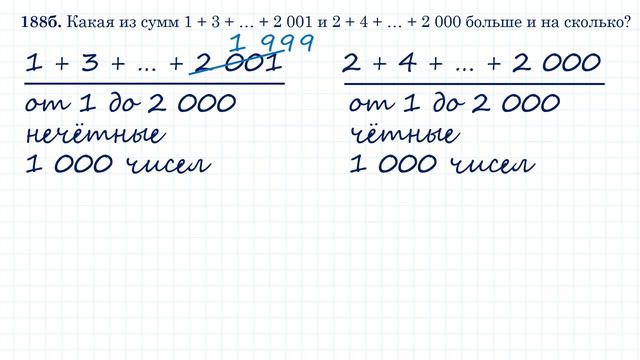 188б. Какая из сумм 1 + 3 + … + 2 001 и 2 + 4 + … + 2 000 больше и на сколько?
1 999
1 + 3 + ... + 2 001
от 1 до 2 000
нечётные
1 000 чисел
2 + 4 + ... + 2 000
от 1 до 2 000
чётные
1 000 чисел